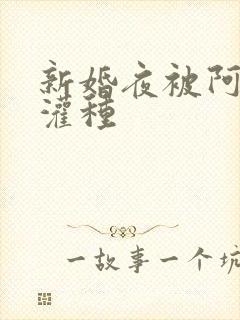 新婚夜被阿
灌種
一故事一个坑